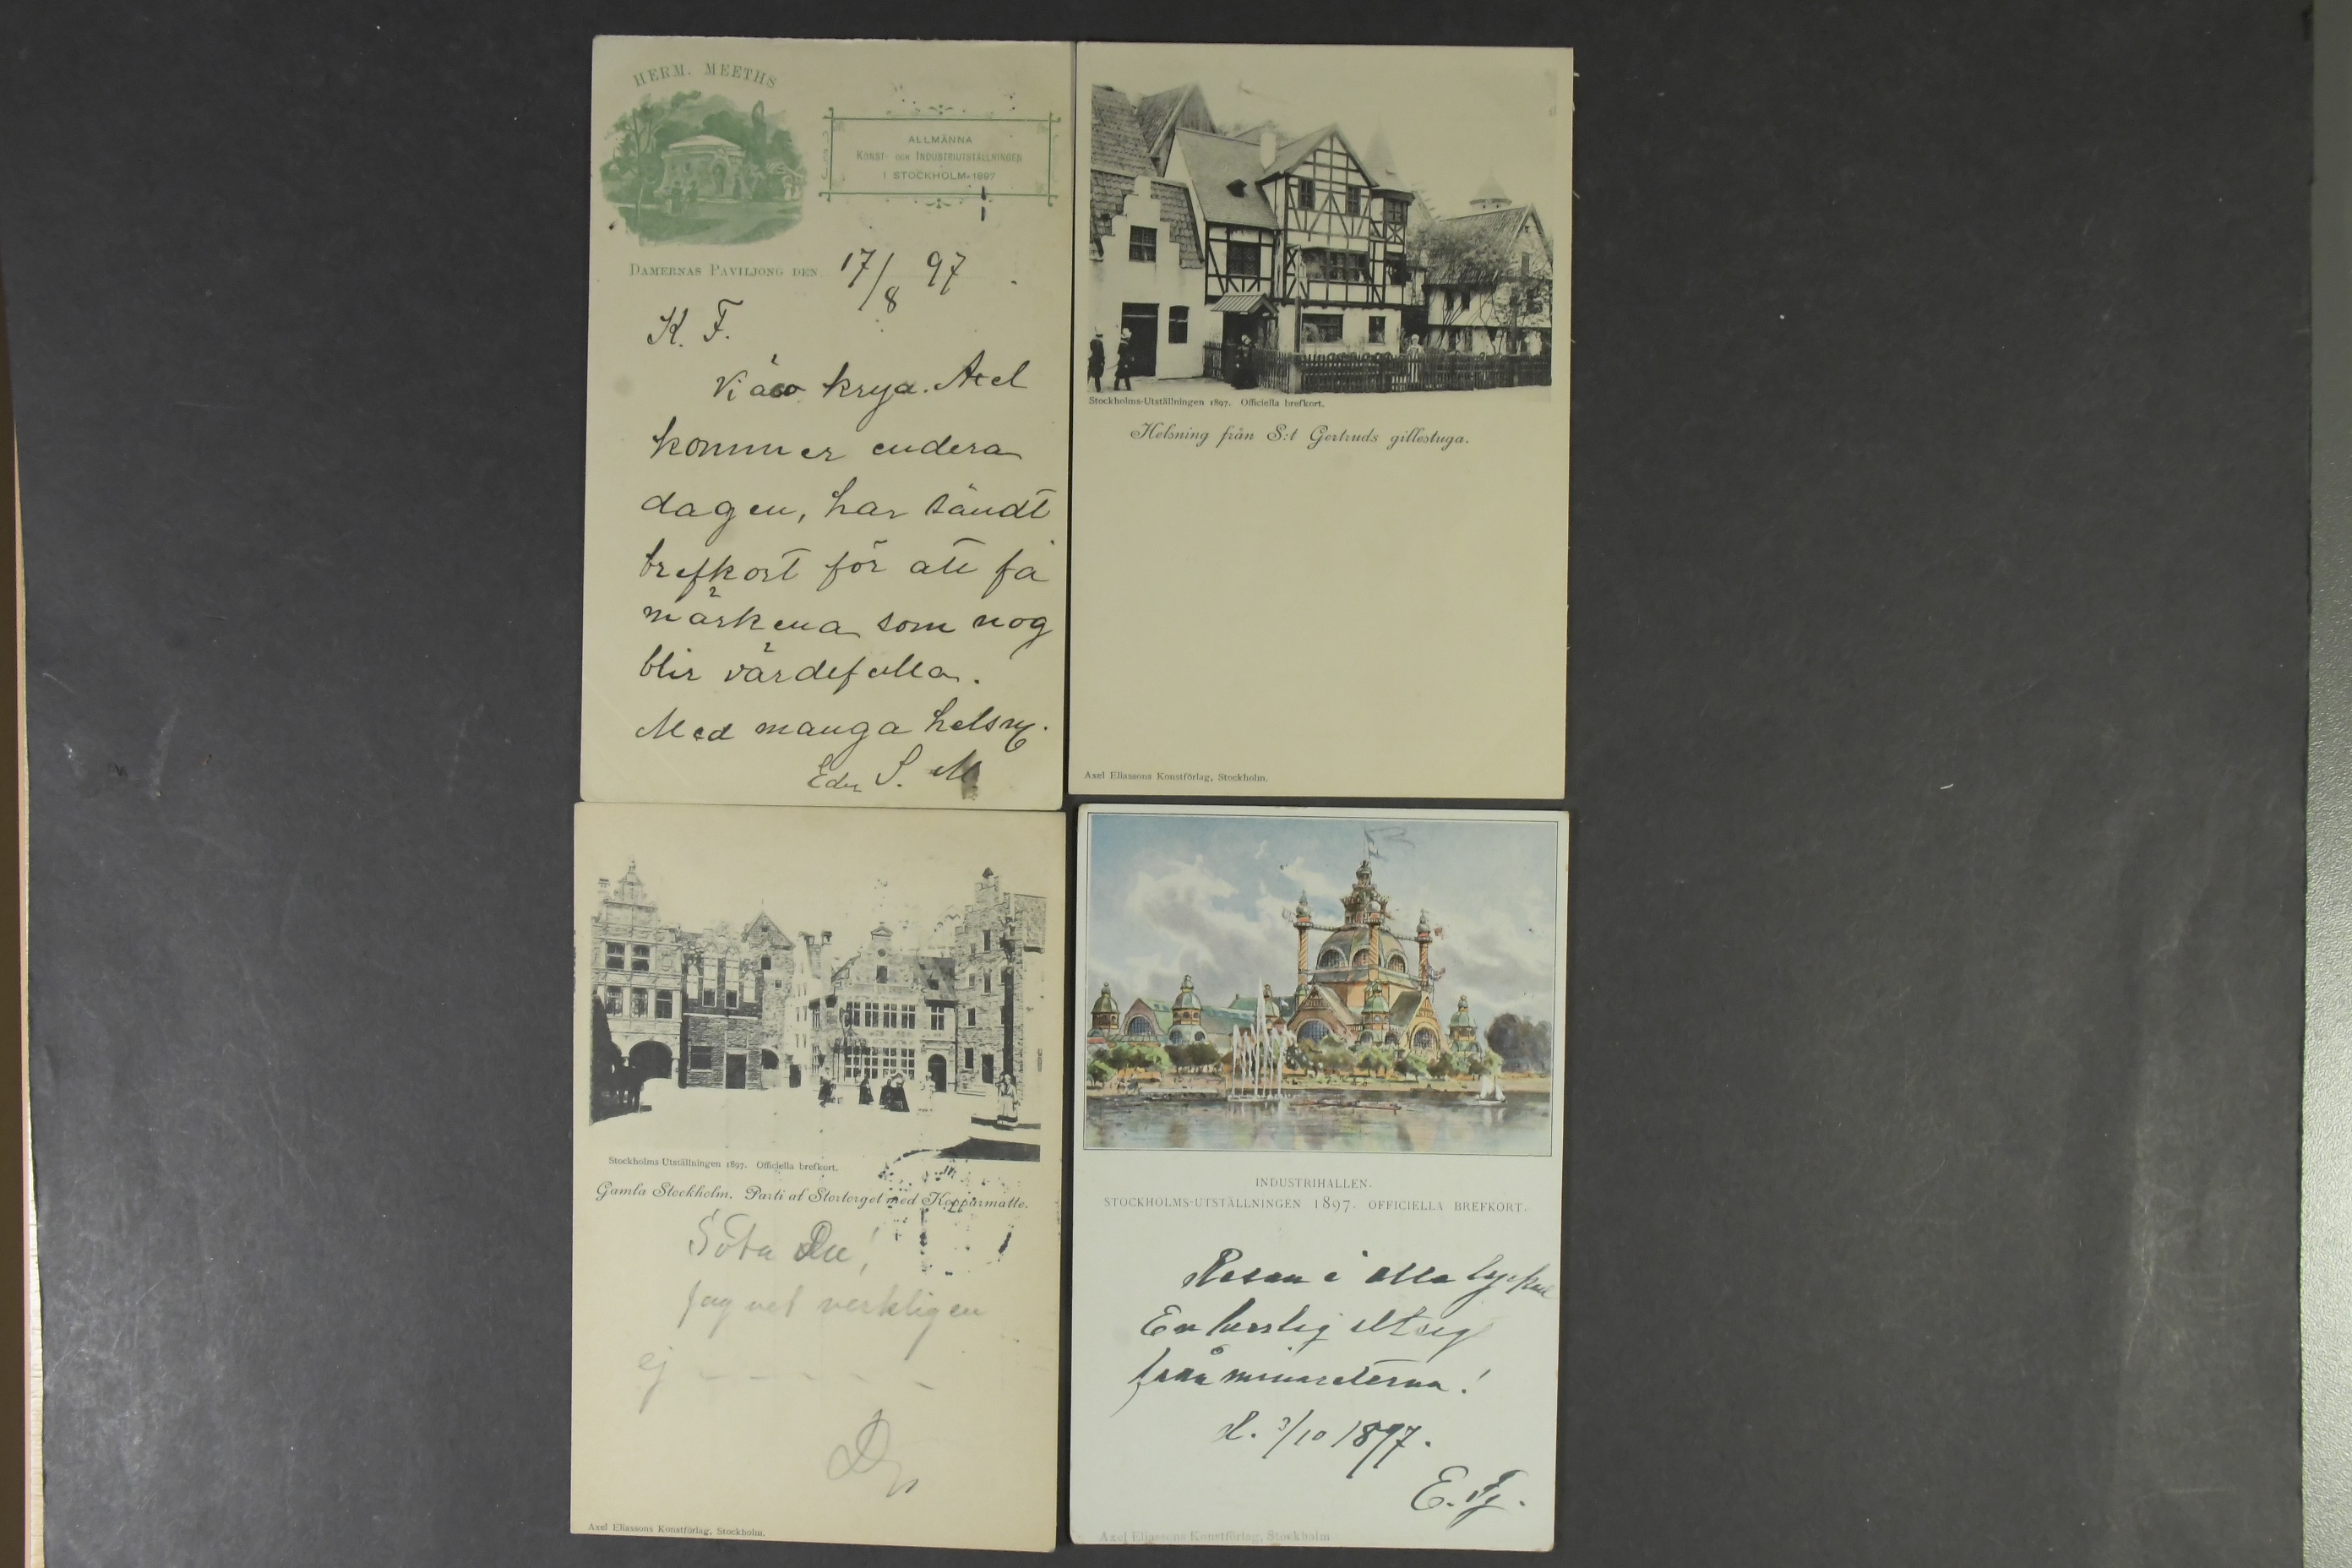 HERM. MEETHS
ALLMÄNNA
KONST- OCH INDUSTRIUTSTÄLLNINGEN
I STOCKHOLM 1897
DAMERNAS PAVILJONG DEN 17/8 97
K. F.
Vi äro krya. Axel
kommer endera
dagen, har sändt
brefkort för att få
märkena som nog
blir värdefulla.
Med många helsng.
Eder S. M
Stockholms-Utställningen 1897. Officiella brefkort.
Helsning från S:t Gertruds gillestuga.
Axel Eliassons Konstförlag, Stockholm.
Stockholms-Utställningen 1897. Officiella brefkort.
Gamla Stockholm. Parti af Stortorget med Kopparmatte.
Söta Du!
Jag vet verkligen
ej — — — — —
Axel Eliassons Konstförlag, Stockholm.
INDUSTRIHALLEN.
STOCKHOLMS-UTSTÄLLNINGEN 1897. OFFICIELLA BREFKORT.
Resan i alla
En
från minareterna!
d. 3/10 1897.
Axel Eliassons Konstförlag, Stockholm